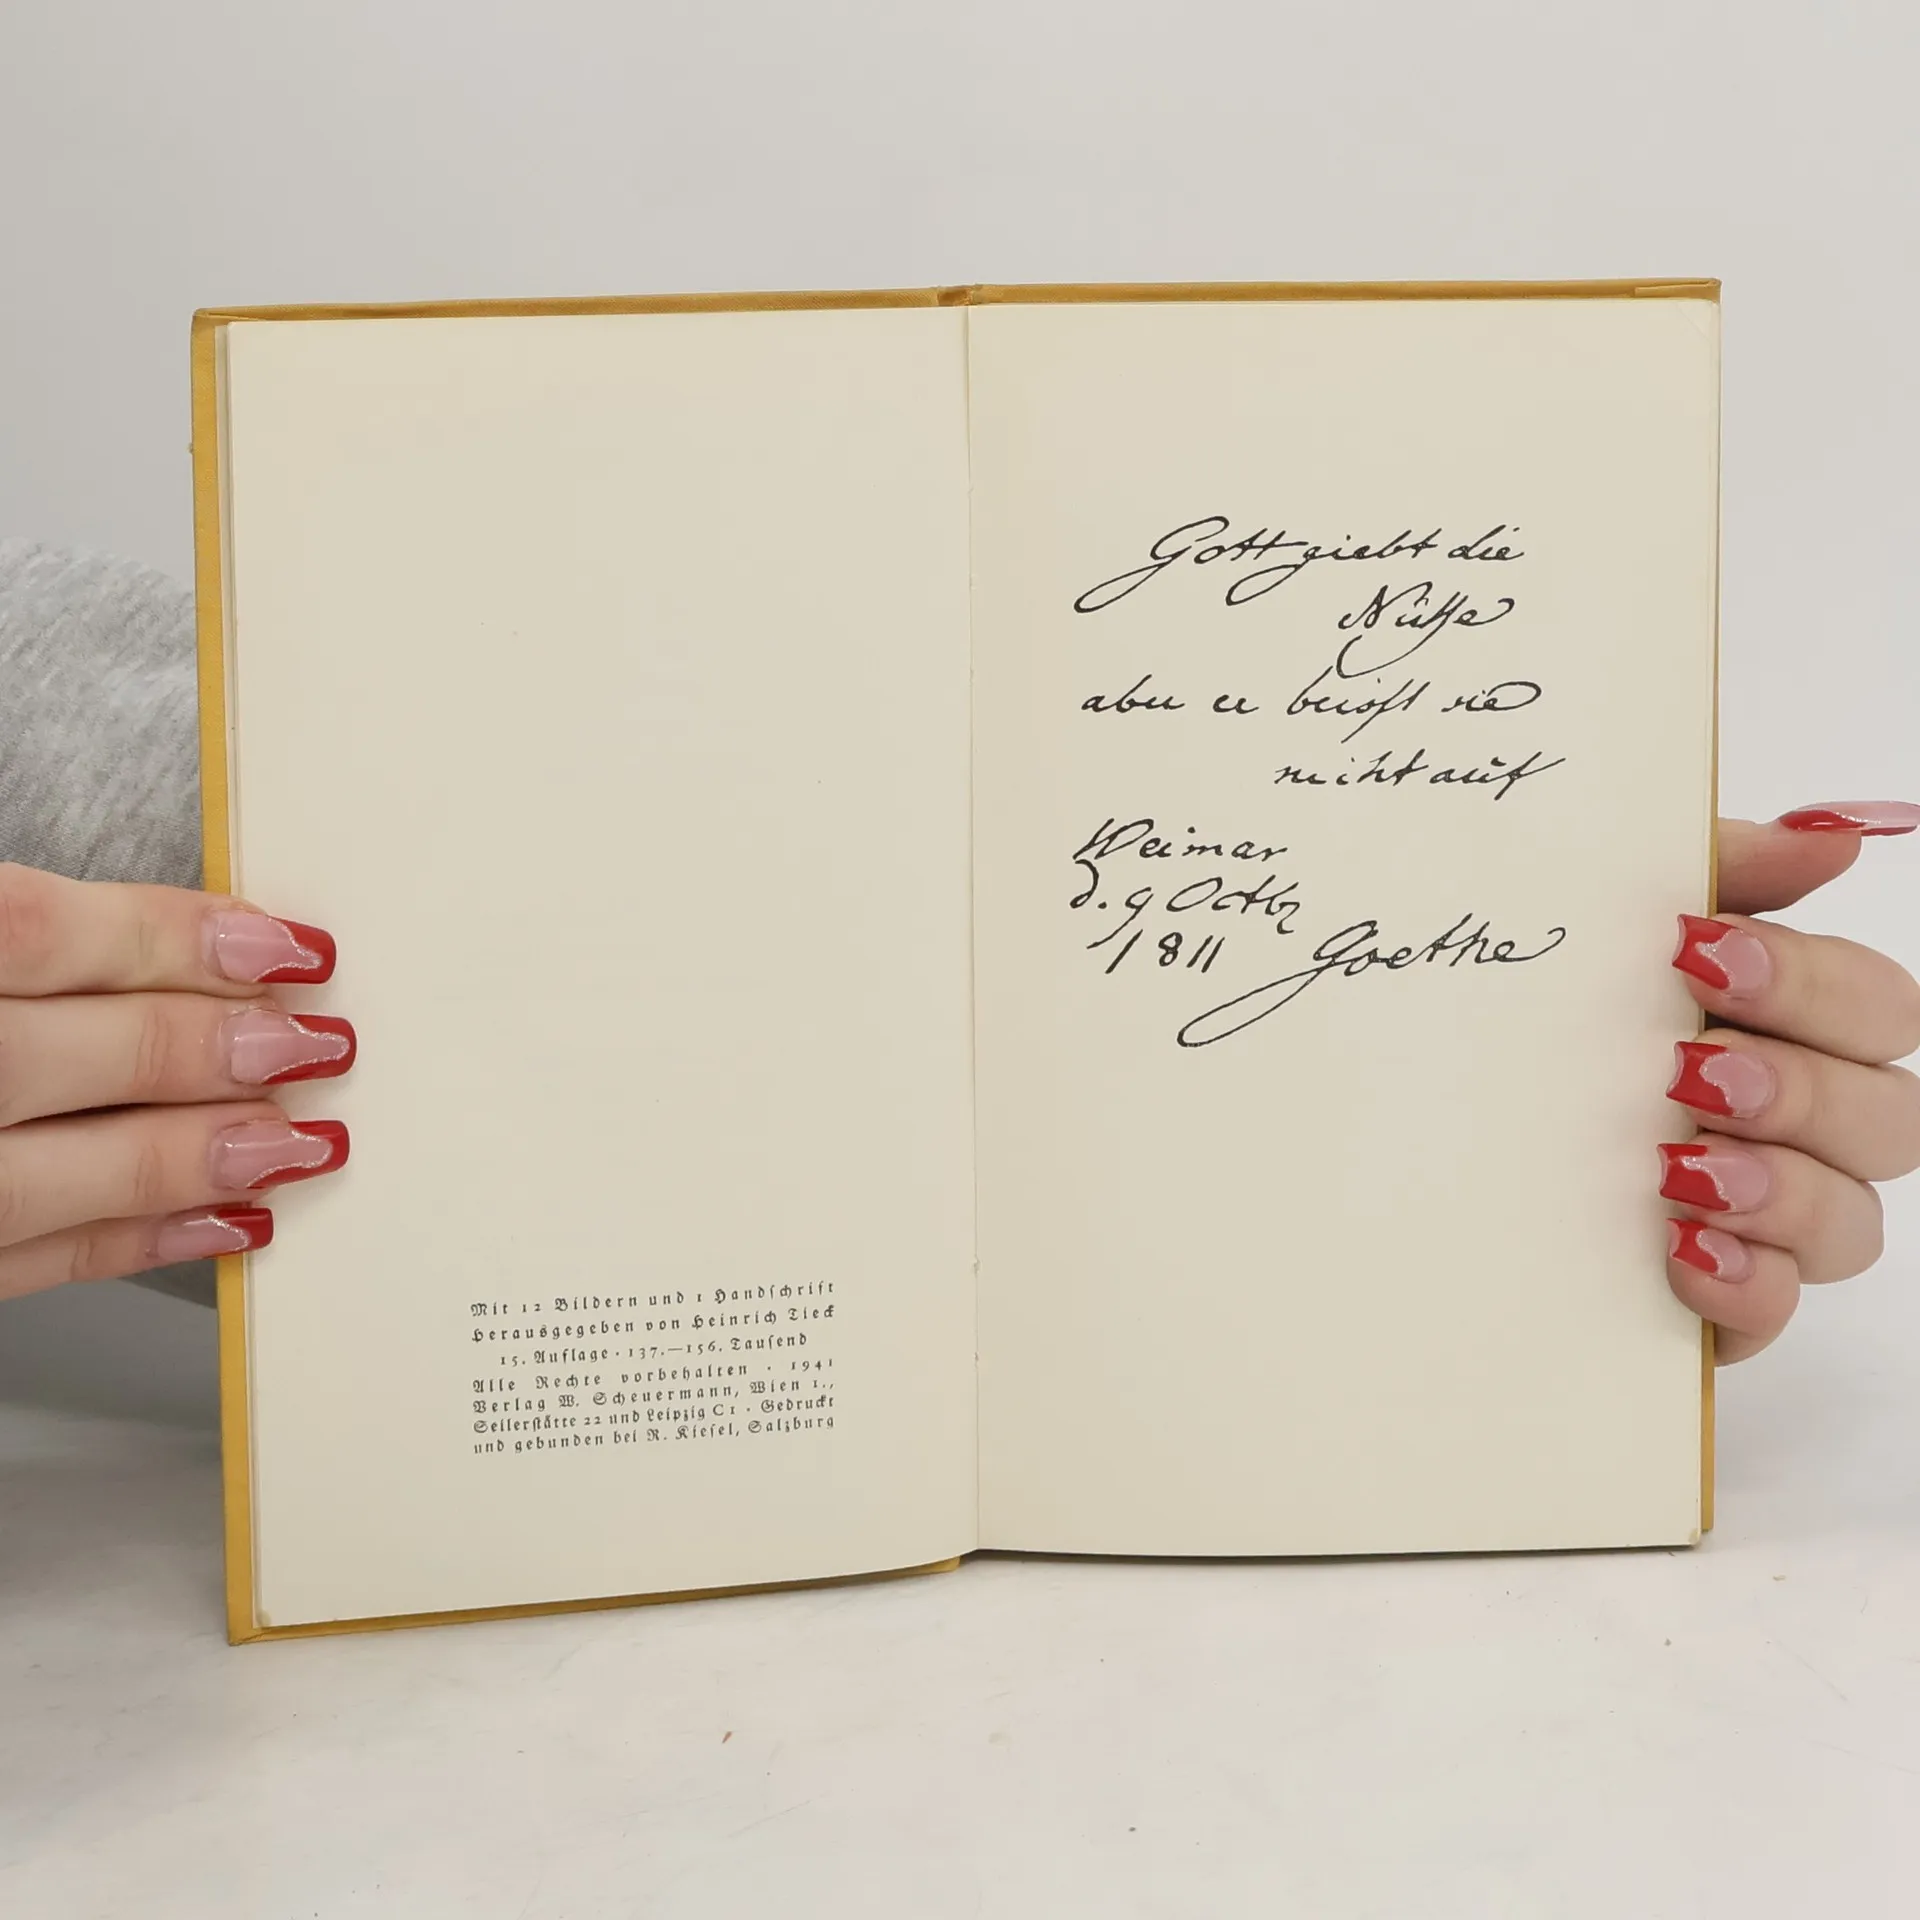 Mit 12 Bildern und 1 Handschrift
Herausgegeben von Heinrich Tieck
15. Auflage · 137.—156. Tausend
Alle Rechte vorbehalten · 1941
Verlag W. Scheuermann, Wien 1.,
Seilerstätte 22 und Leipzig C1 · Gedruckt
und gebunden bei R. Kiesel, Salzburg
Gott giebt die
Nüsse
aber er beisst sie
nicht auf
Weimar
d. 9 Octbr
1811 Goethe